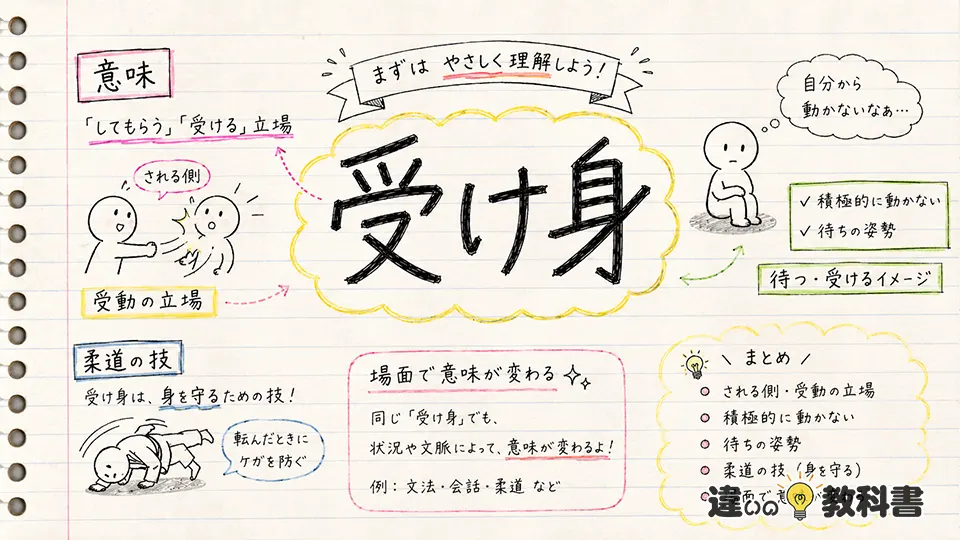 まずは やさしく理解しよう！
受け身
意味
「してもらう」「受ける」立場
される側
受動の立場
自分から
動かないなぁ…
✓ 積極的に動かない
✓ 待ちの姿勢
待つ・受けるイメージ
柔道の技
受け身は、身を守るための技！
転んだときに
ケガを防ぐ
場面で意味が変わる
同じ「受け身」でも、
状況や文脈によって、意味が変わるよ！
例：文法・会話・柔道 など
\ まとめ /
される側・受動の立場
積極的に動かない
待ちの姿勢
柔道の技（身を守る）
面で意
違いの教科書